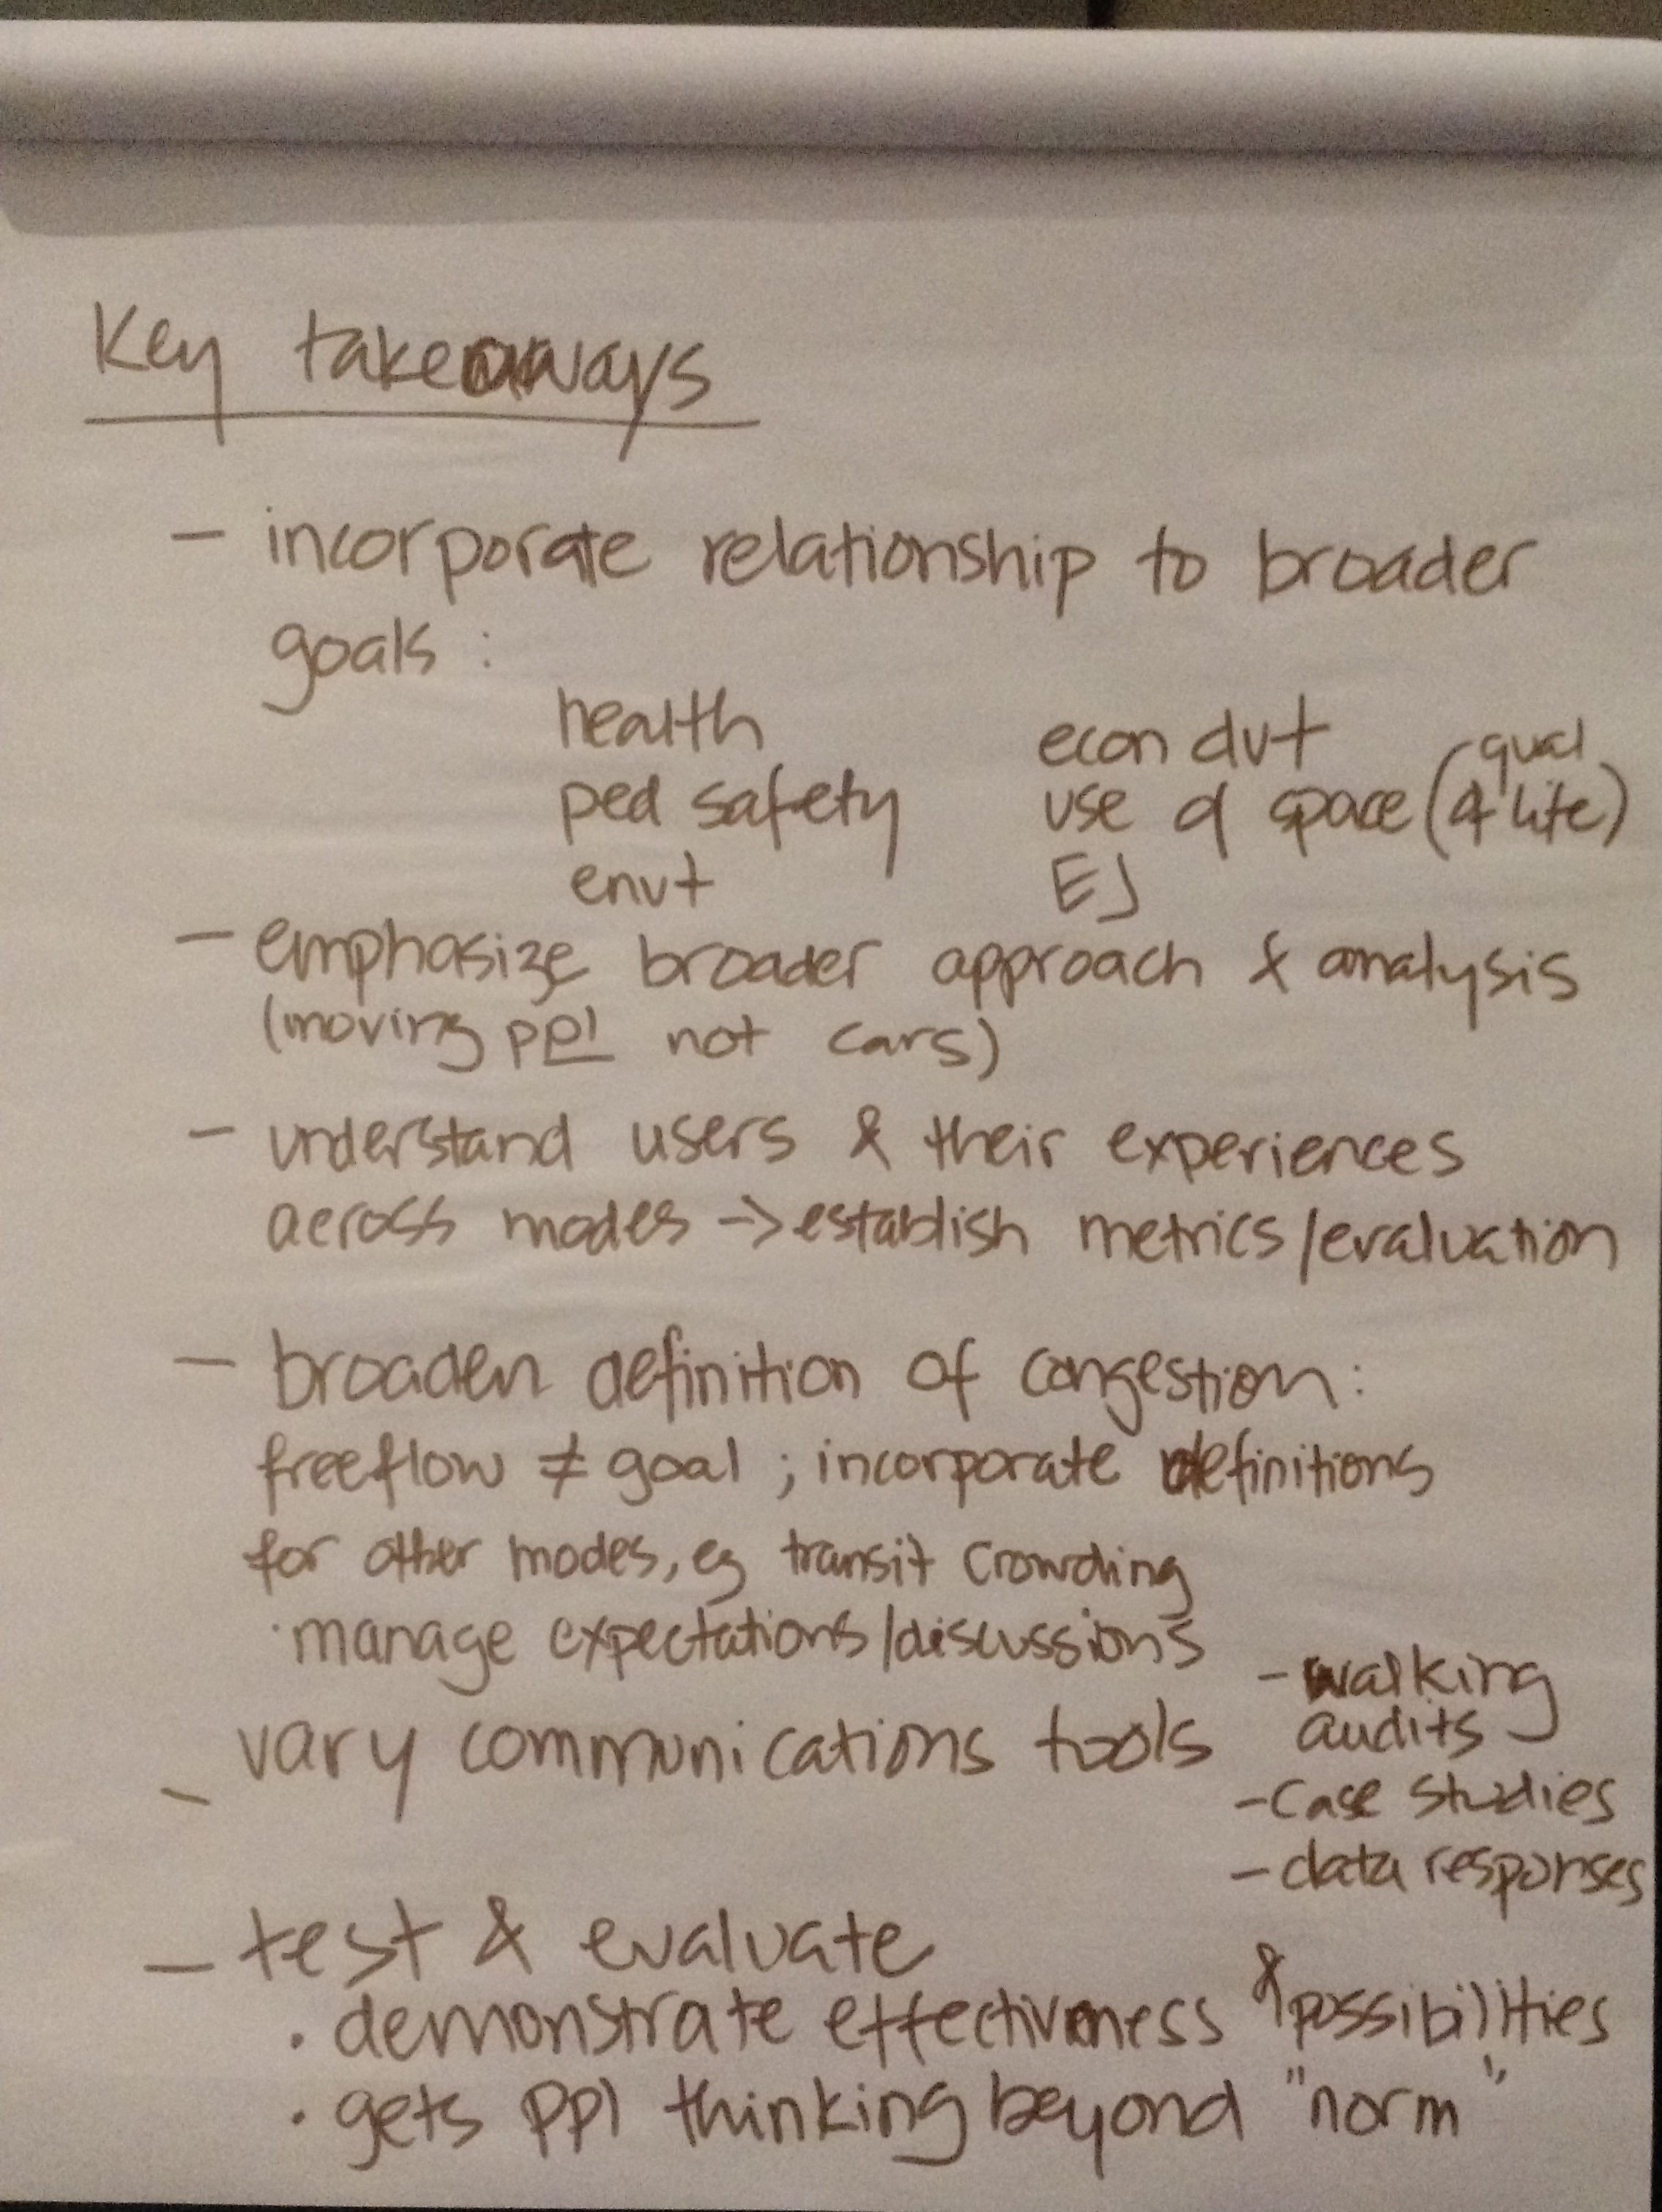 Key takeaways
- incorporate relationship to broader
goals :
health
ped safety
envt
econ dvt
use of space (qual
of life)
EJ
- emphasize broader approach & analysis
(moving ppl not cars)
- understand users & their experiences
across modes -> establish metrics/evaluation
- broaden definition of congestion:
freeflow ≠ goal ; incorporate definitions
for other modes, eg transit crowding
· manage expectations/discussions
- vary communications tools
- walking
audits
- case studies
- data responses
- test & evaluate
· demonstrate effectiveness & possibilities
· gets ppl thinking beyond "norm"